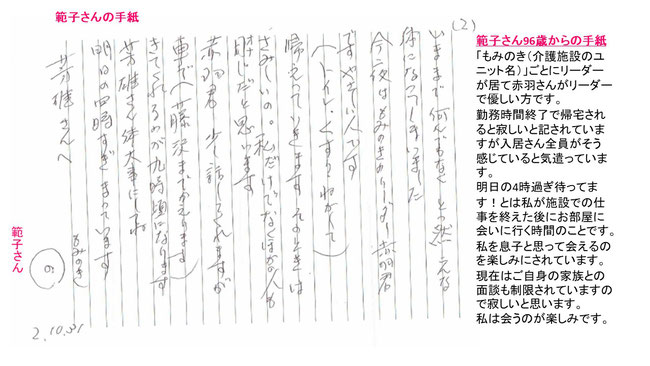 範子さんの手紙
(2)
いままで何んでもなくとつ然こんな
体になってしまいました
今夜はもみのきのリーダー赤羽君
ですやさしい人です
(トイレ、くすり、ねかして)
帰えっていきますそのときは
さみしいの。私だけでなくほかの人も
同じだと思います
赤羽君少し話してくれますが
車で(藤沢までかえります)
きてくれるのが九時頃になります
芳雄さん体大事にしてね
明日の四時すぎまっています
もみのき
芳雄さんへ
の
2.10.31
範子さん
範子さん96歳からの手紙
「もみのき（介護施設のユ
ニット名）」ごとにリーダー
が居て赤羽さんがリーダー
で優しい方です。
勤務時間終了で帰宅され
ると寂しいと記されていま
すが入居さん全員がそう
感じていると気遣っていま
す。
明日の4時過ぎ待ってま
す！とは私が施設での仕
事を終えた後にお部屋に
会いに行く時間のことです。
私を息子と思って会えるの
を楽しみにされています。
現在はご自身の家族との
面談も制限されていますの
で寂しいと思います。
私は会うのが楽しみです。